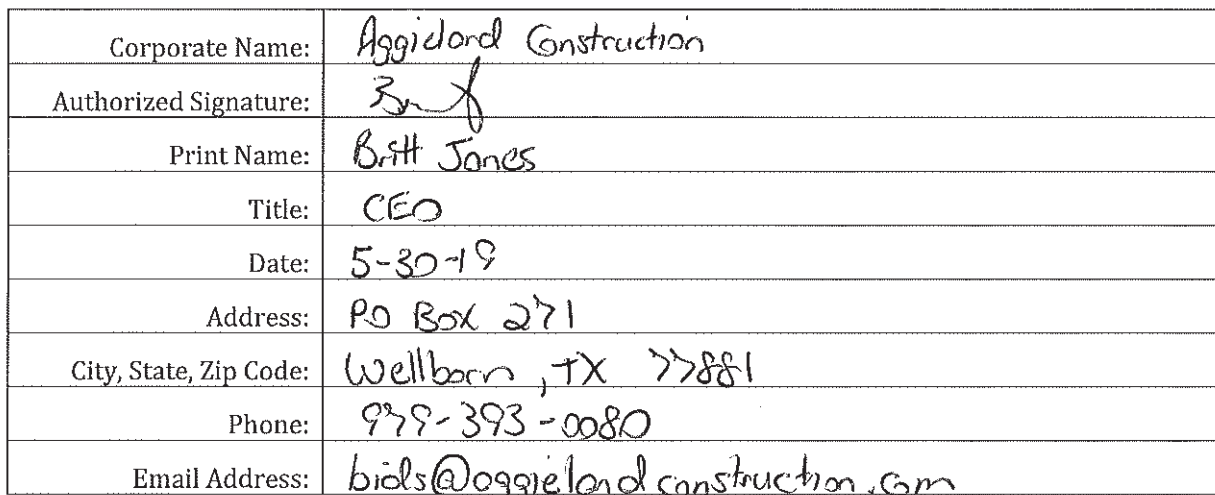 Corporate Name: Aggieland Construction
Authorized Signature:
Print Name: Britt Jones
Title: CEO
Date: 5-30-19
Address: PO Box 271
City, State, Zip Code: Wellborn, TX 77881
Phone: 979-393-0080
Email Address: bids@aggielandconstruction.com